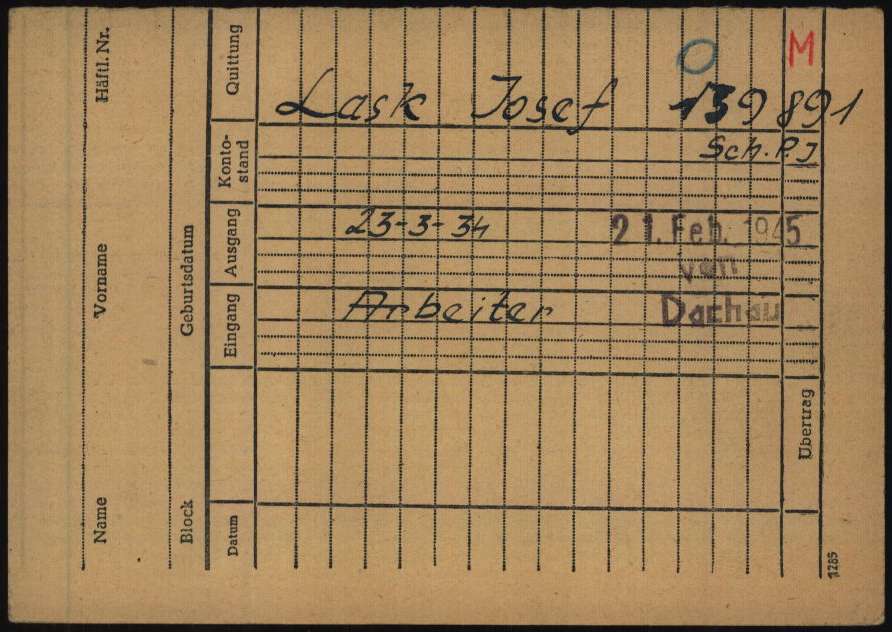 Name Vorname Häftl. Nr.
Block Geburtsdatum
Datum Eingang Ausgang Konto-
stand Quittung
Übertrag
1285
M
Lask Josef 139891
Sch. P. J
23-3-34
21. Feb. 1945
von
Dachau
Arbeiter